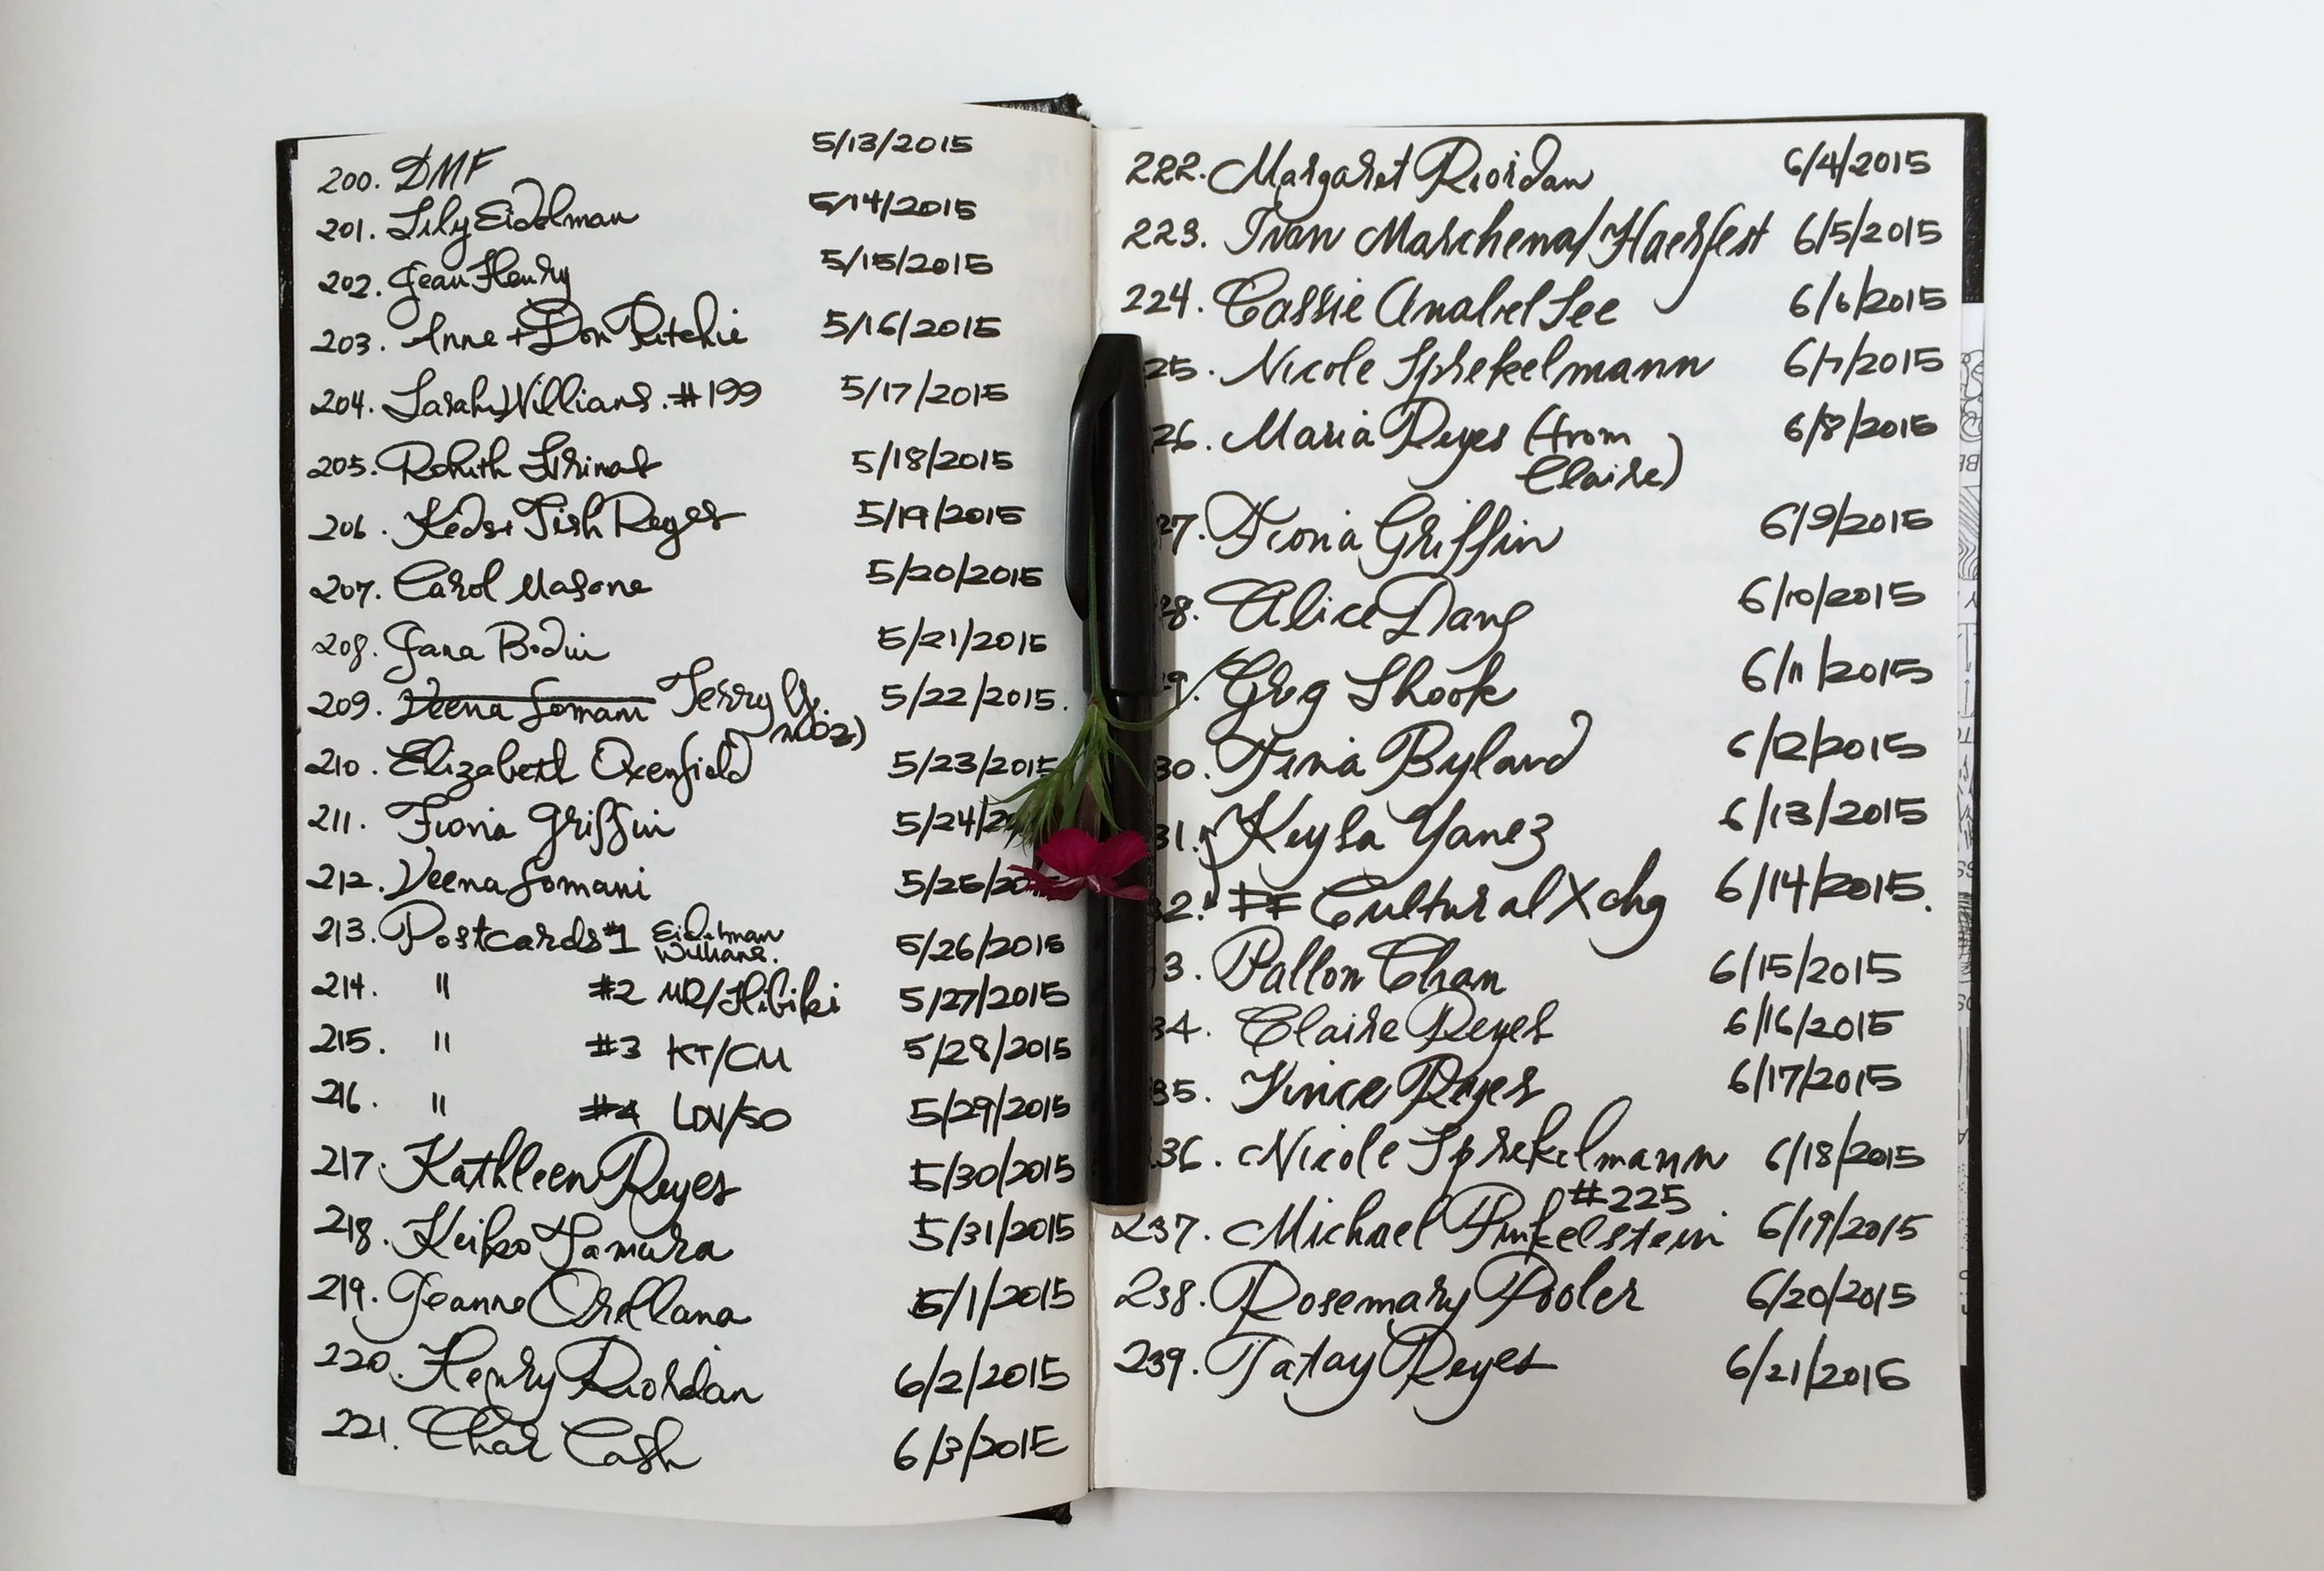 200. DMF 5/13/2015
201. Lily Eidelman 5/14/2015
202. Jean Henry 5/15/2015
203. Anne + Don Ritchie 5/16/2015
204. Sarah Williams. #199 5/17/2015
205. Rohith 5/18/2015
206. Tish Reyes 5/19/2015
207. Carol Masone 5/20/2015
208. Jana Bodin 5/21/2015
209. Veena Somani Terry Y. 5/22/2015.
210. Elizabeth Oxenfield 5/23/2015
211. Fiona Griffin 5/24/2
212. Veena Somani 5/25/20
213. Postcards #1 Eidelman Williams. 5/26/2015
214. " #2 MR/Hibiki 5/27/2015
215. " #3 KT/CM 5/28/2015
216. " #4 LDV/SO 5/29/2015
217. Kathleen Reyes 5/30/2015
218. Keiko Tamura 5/31/2015
219. Jeanne Orellana 6/1/2015
220. Henry Riordan 6/2/2015
221. Char Cash 6/3/2015
222. Margaret Riordan 6/4/2015
223. Ivan Marchena/Haerfest 6/5/2015
224. Cassie Anabel Lee 6/6/2015
25. Nicole Sprekelmann 6/7/2015
26. Maria Reyes (from 6/8/2015
Claire)
27. Fiona Griffin 6/9/2015
28. Alice Dang 6/10/2015
29. Greg Shook 6/11/2015
30. Tina Byland 6/12/2015
31. Keyla Yanez 6/13/2015
32. Cultural Xchg 6/14/2015.
3. Pallon Chan 6/15/2015
34. Claire Reyes 6/16/2015
35. Vince Reyes 6/17/2015
36. Nicole Sprekelmann 6/18/2015
#225
237. Michael Finkelstein 6/19/2015
238. Rosemary Pooler 6/20/2015
239. Tatay Reyes 6/21/2015